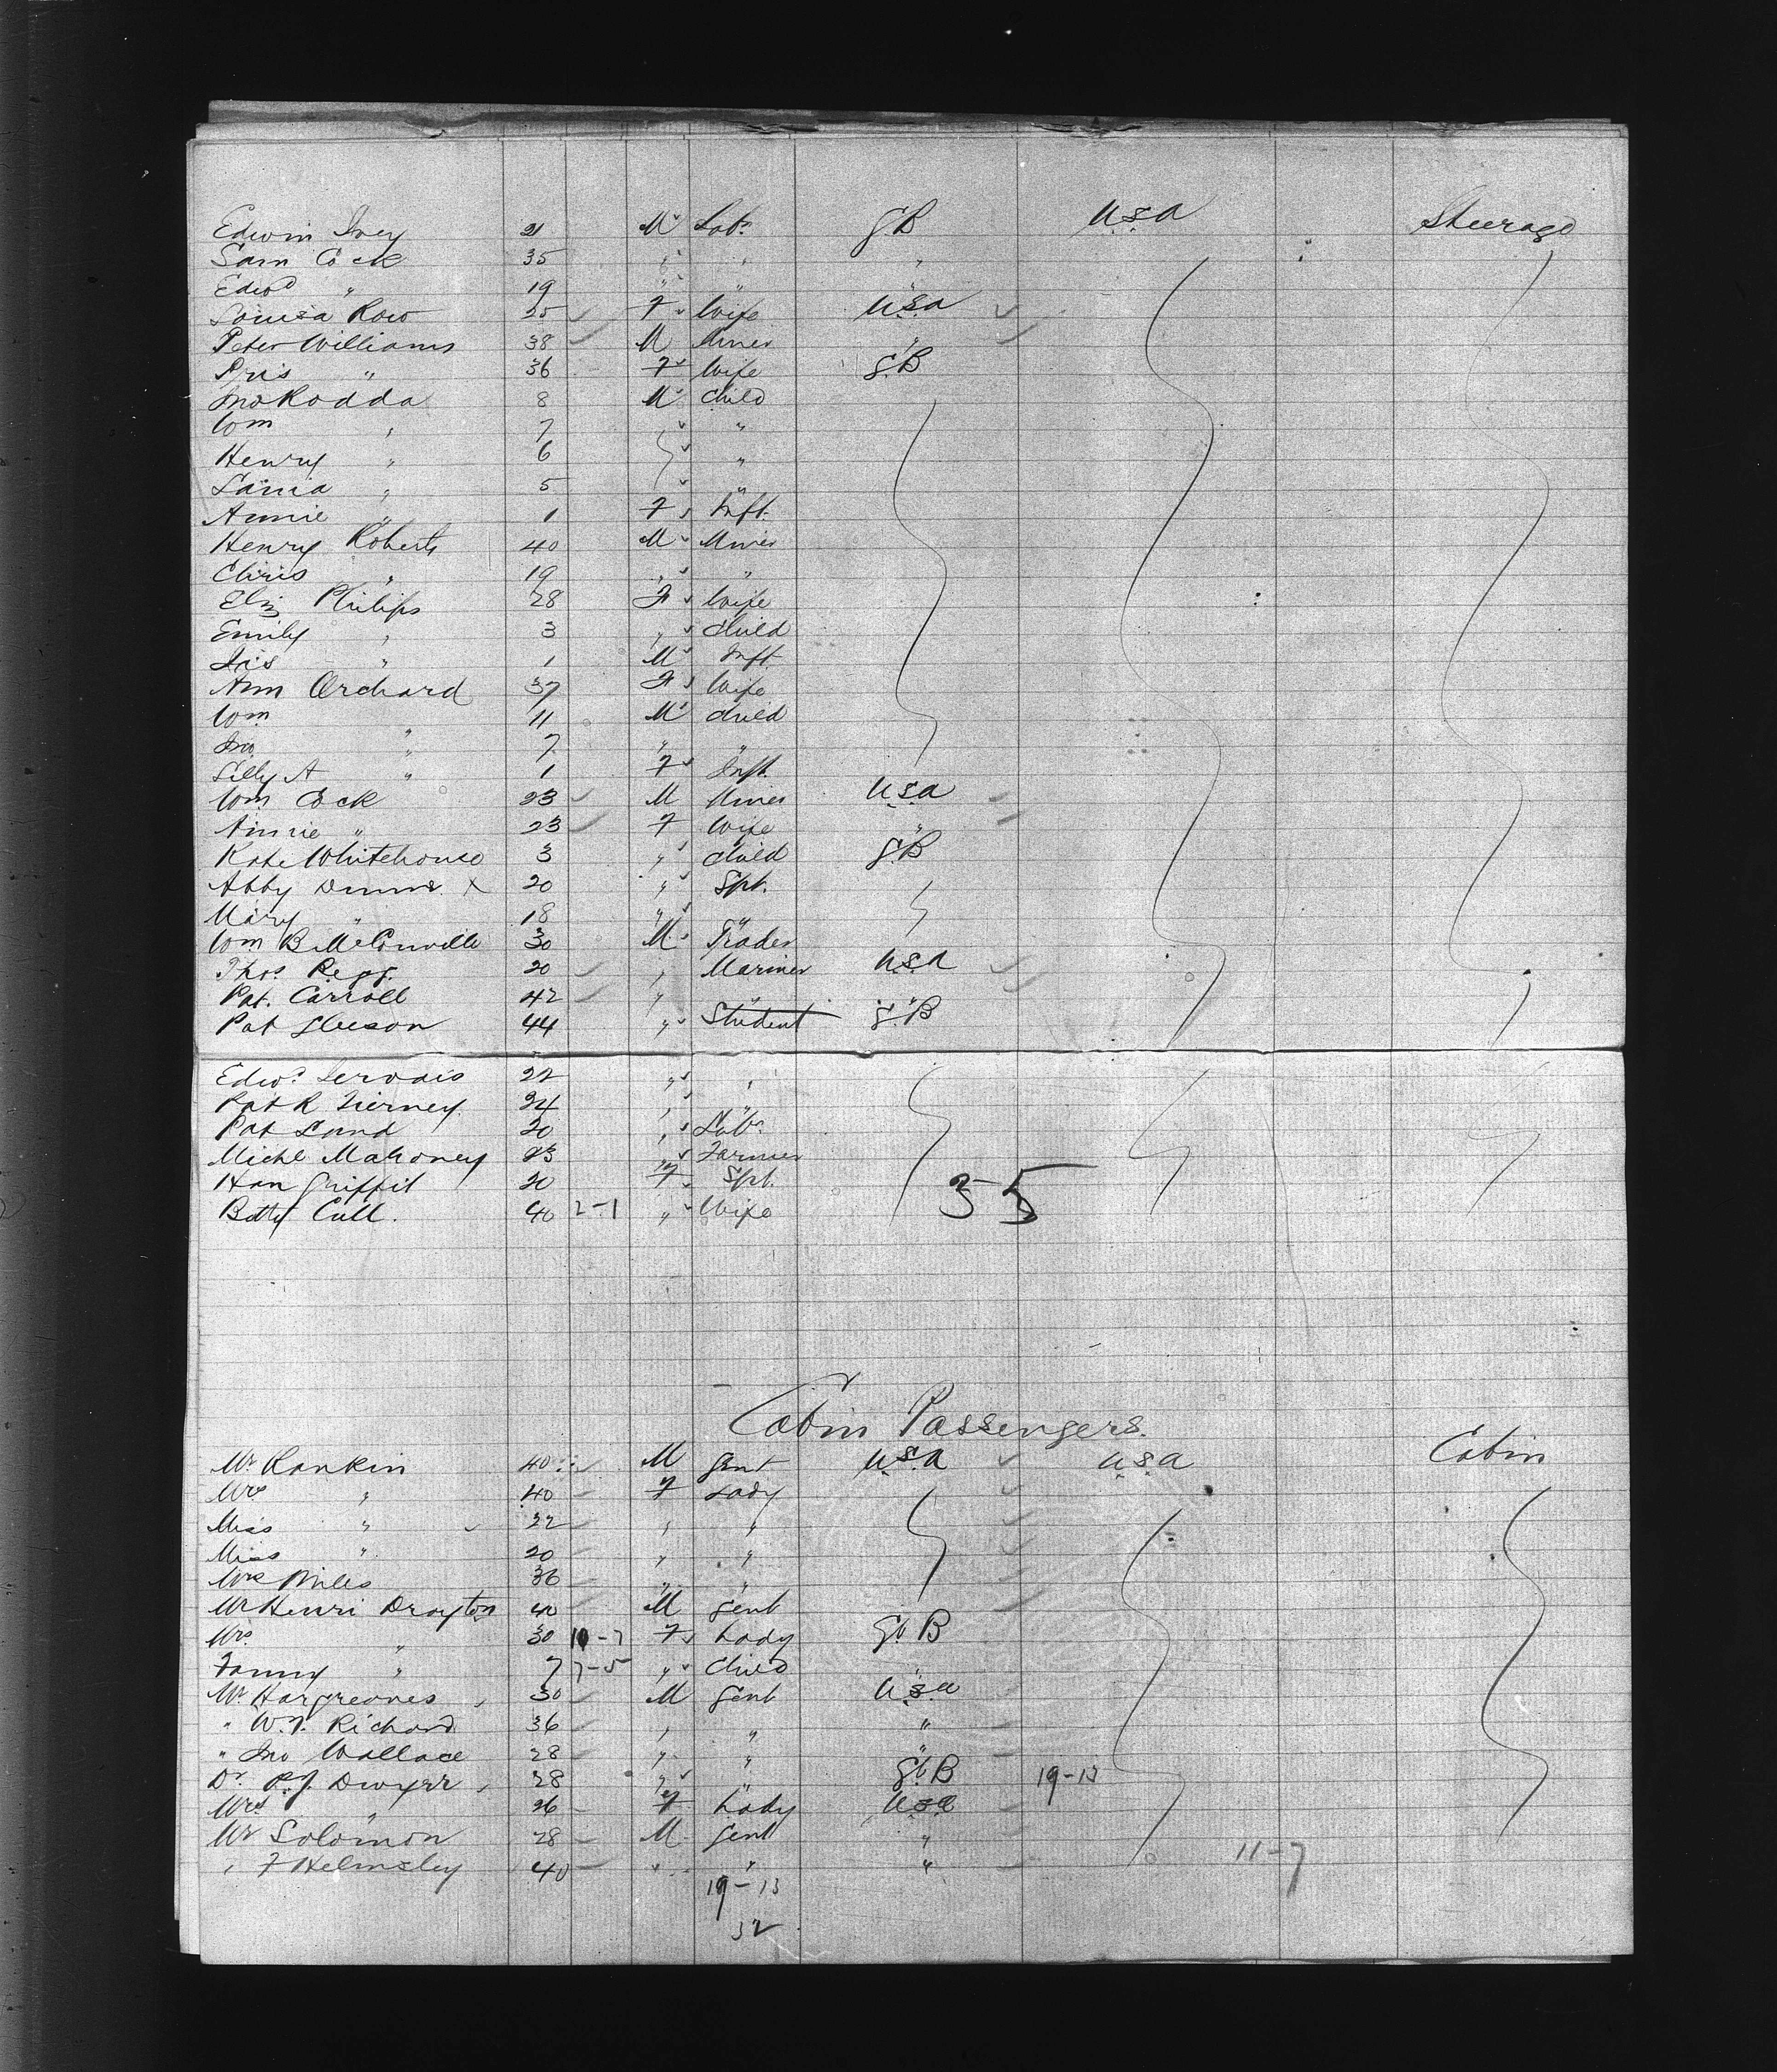 Edwin Ivey 21 M Labr G.B U.S.A Steerage
Sam Cock 35 " " "
Edwd " 19 " " "
Louisa Row 25 F Wife U.S.A
Peter Williams 38 M Miner "
Pris " 36 F Wife G.B
Jno Rodda 8 M Child
Wm " 7 " "
Henry " 6 "
" 5 "
Annie " 1 F Inft.
Henry Roberts 40 M Miner
Chris " 19 " "
Eliz Philips 28 F Wife
Emily " 3 " Child
" 1 M Inft
Ann Orchard 37 F Wife
Wm " 11 M Child
Jno " 7 " "
Lilly A " 1 F Inft.
Wm Cock 23 M Miner U.S.A
Annie " 23 F Wife "
Kate Whitehouse 3 " Child G.B
Abby X 20 " Spt.
Mary " 18 " "
Wm B McConville 30 M Trader
Thos Begg. 20 " Mariner U.S.A
Pat. Carroll 42 " " "
Pat Gleeson 44 " Student G.B
Edwd Servais 22 " "
Pat R Tierney 24 " "
Pat Lund 20 " Labr
Michl Mahoney 23 " Farmer
Han Griffit 20 F Spt.
Betty Cull. 40 2-1 " Wife 35
Cabin Passengers.
Mr Rankin 40 M Gent U.S.A U.S.A Cabin
Mrs " 40 F Lady
Miss " 22 " "
Miss " 20 " "
Mrs Miles 36 " "
Mr Henri Drayton 40 M Gent
Mrs " 30 10-7 F Lady Gt B
Fanny " 7 7-5 " Child "
Mr Hargreaves 30 M Gent U.S.A
" W.F. Richard 36 " " "
" Jno Wallace 28 " " "
Dr. P.J. Dwyer 28 " " Gt B 19-13
Mrs " 26 F Lady U.S.A
Mr Solomon 28 M Gent "
" F Helmsley 40 " " " 11-7
19-13
32